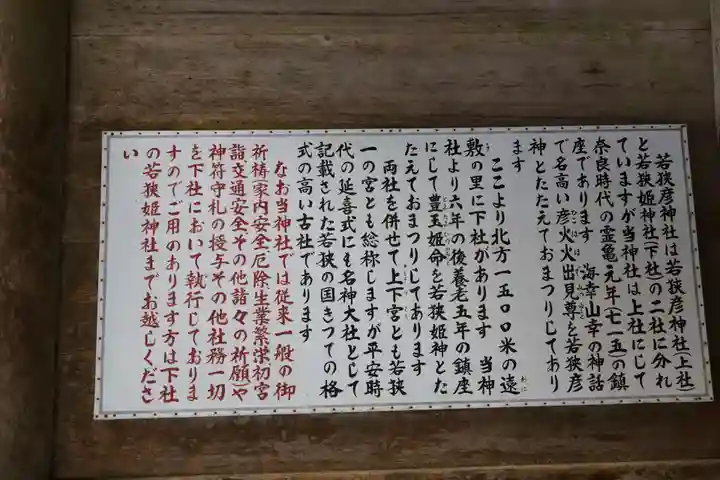 若狭彦神社は若狭彦神社(上社)
と若狭姫神社(下社の二社に分れ
ていますが当神社は上社にして
奈良時代の霊亀元年(七一五)の鎮
座であります 海幸山幸の神話
で名高い彦火火出見尊を若狭彦
神とたたえておまつりしてあり
ます
ここより北方一五〇〇米の遠
敷の里に下社があります 当神
社より六年の後養老五年の鎮座
にして豊玉姫命を若狭姫神とた
たえておまつりしてあります
両社を併せて上下宮とも若狭
一の宮とも総称しますが平安時
代の延喜式にも名神大社として
記載された若狭の国きっての格
式の高い古社であります
なお当神社では従来一般の御
祈祷家内安全厄除生業繁栄初宮
詣交通安全その他諸々の祈願や
神符守札の授与その他社務一切
を下社において執行しておりま
すのでご用のあります方は下社
の若狭姫神社までお越しくださ
い